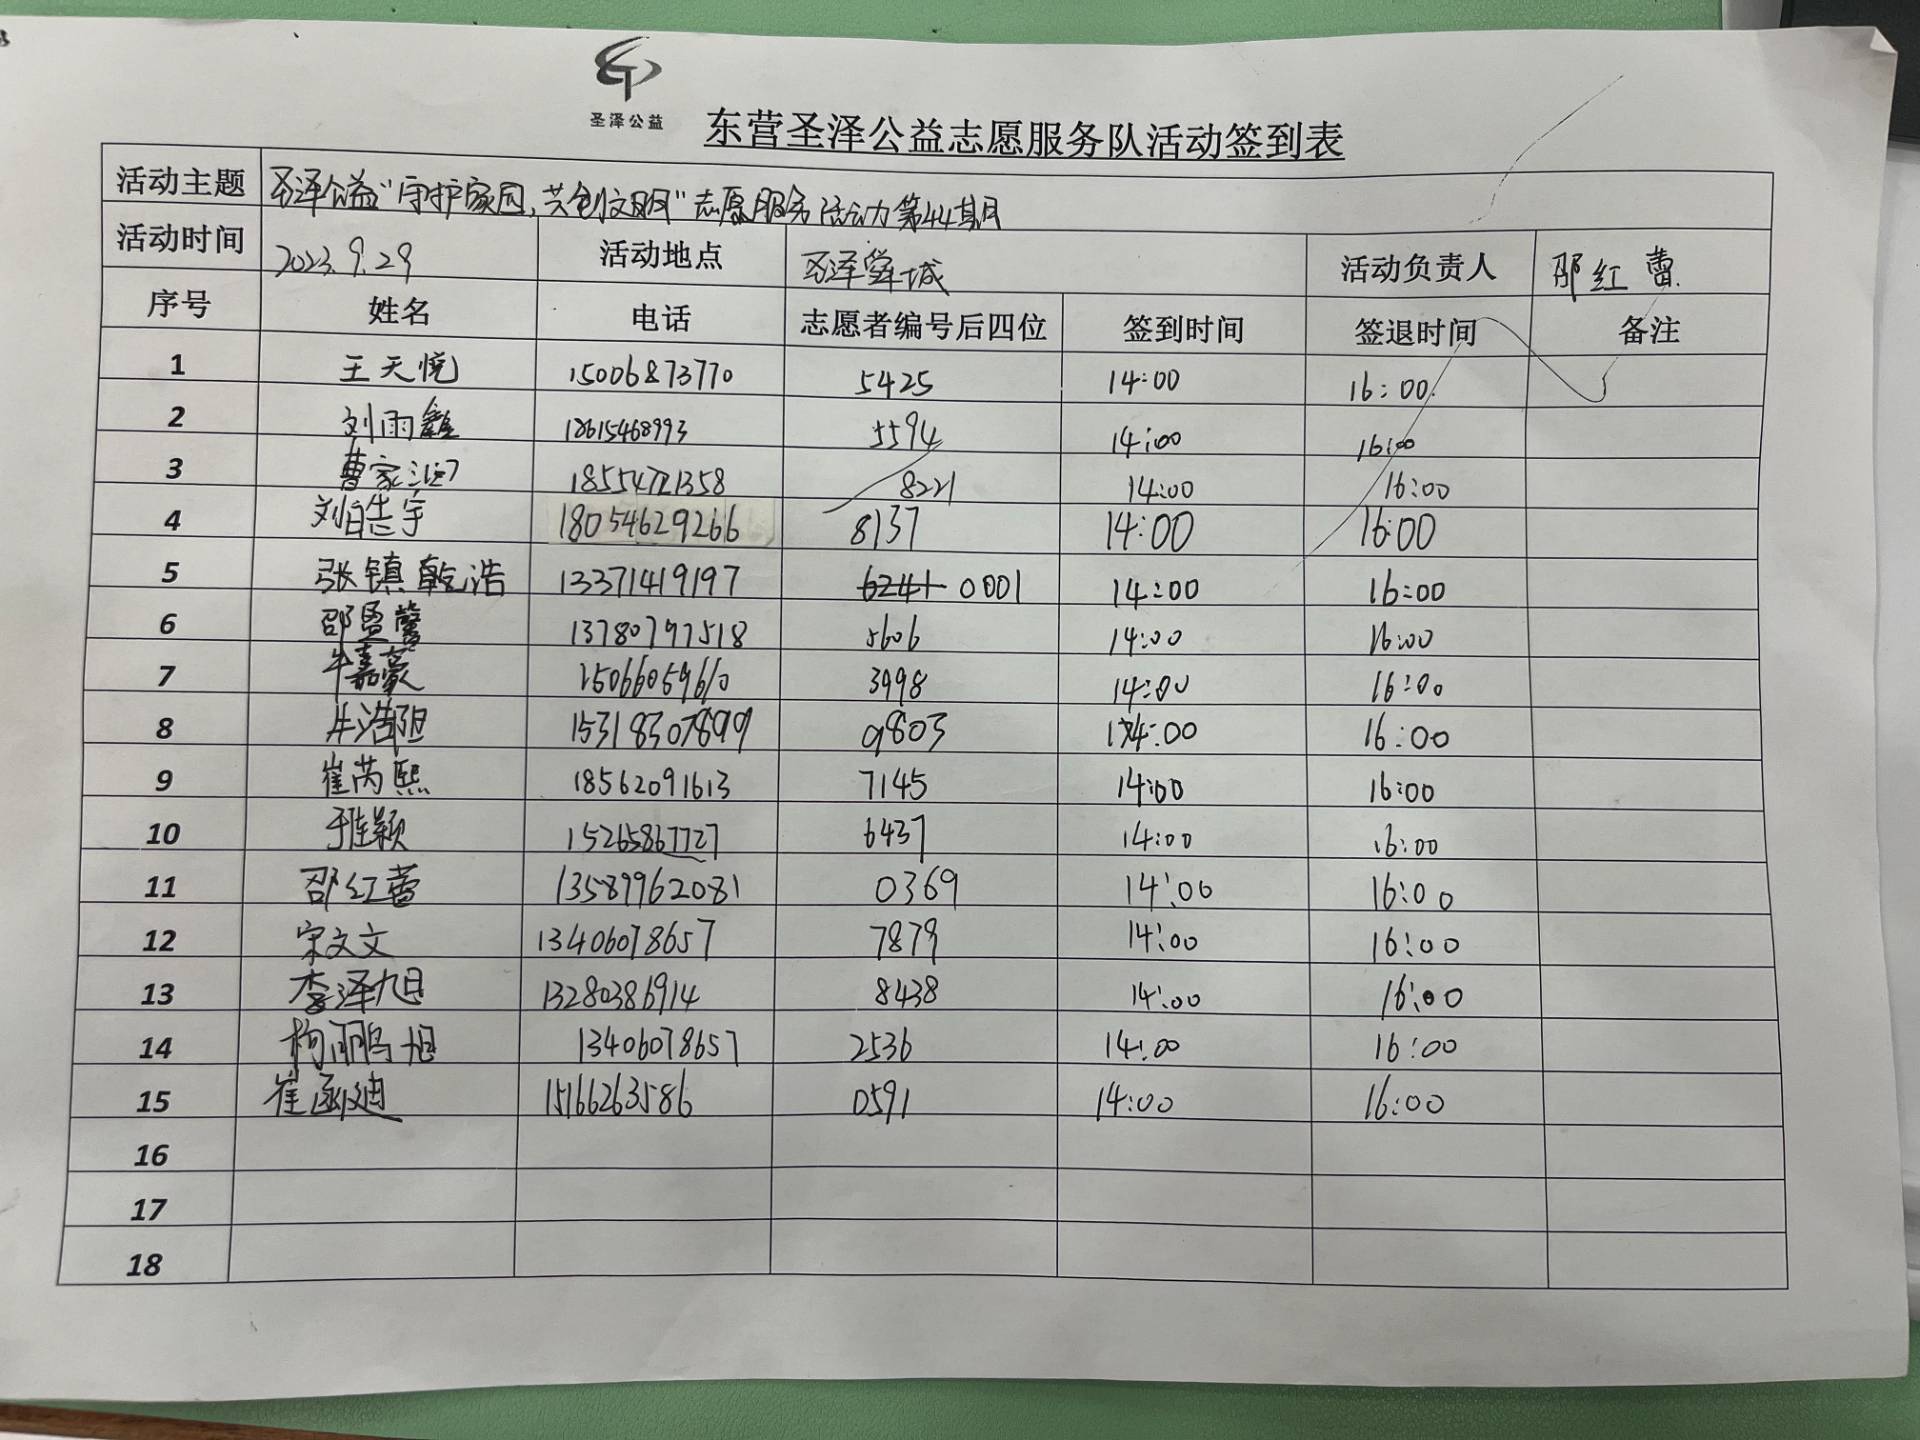 圣泽公益
东营圣泽公益志愿服务队活动签到表
活动主题 圣泽公益"守护家园,共创文明"志愿服务活动第44期
活动时间 2023.9.29 活动地点 圣泽舜城 活动负责人 邵红蕾
序号 姓名 电话 志愿者编号后四位 签到时间 签退时间 备注
1 王天悦 15006873770 5425 14:00 16:00
2 刘雨鑫 18615468993 5594 14:00 16:00
3 曹家 18554721358 8221 14:00 16:00
4 刘皓宇 18054629266 8137 14:00 16:00
5 张镇乾浩 13371419197 6241 0001 14:00 16:00
6 邵显馨 13780797518 5606 14:00 16:00
7 牛嘉豪 15066059610 3998 14:00 16:00
8 牛浩阳 15318307899 9803 14:00 16:00
9 崔芮熙 18562091613 7145 14:00 16:00
10 于佳颖 15265867727 6437 14:00 16:00
11 邵红蕾 13589962081 0369 14:00 16:00
12 宋文文 13406078657 7879 14:00 16:00
13 李泽旭 13280386914 8438 14:00 16:00
14 13406078657 2536 14:00 16:00
15 崔函迪 15166263586 0591 14:00 16:00
16
17
18